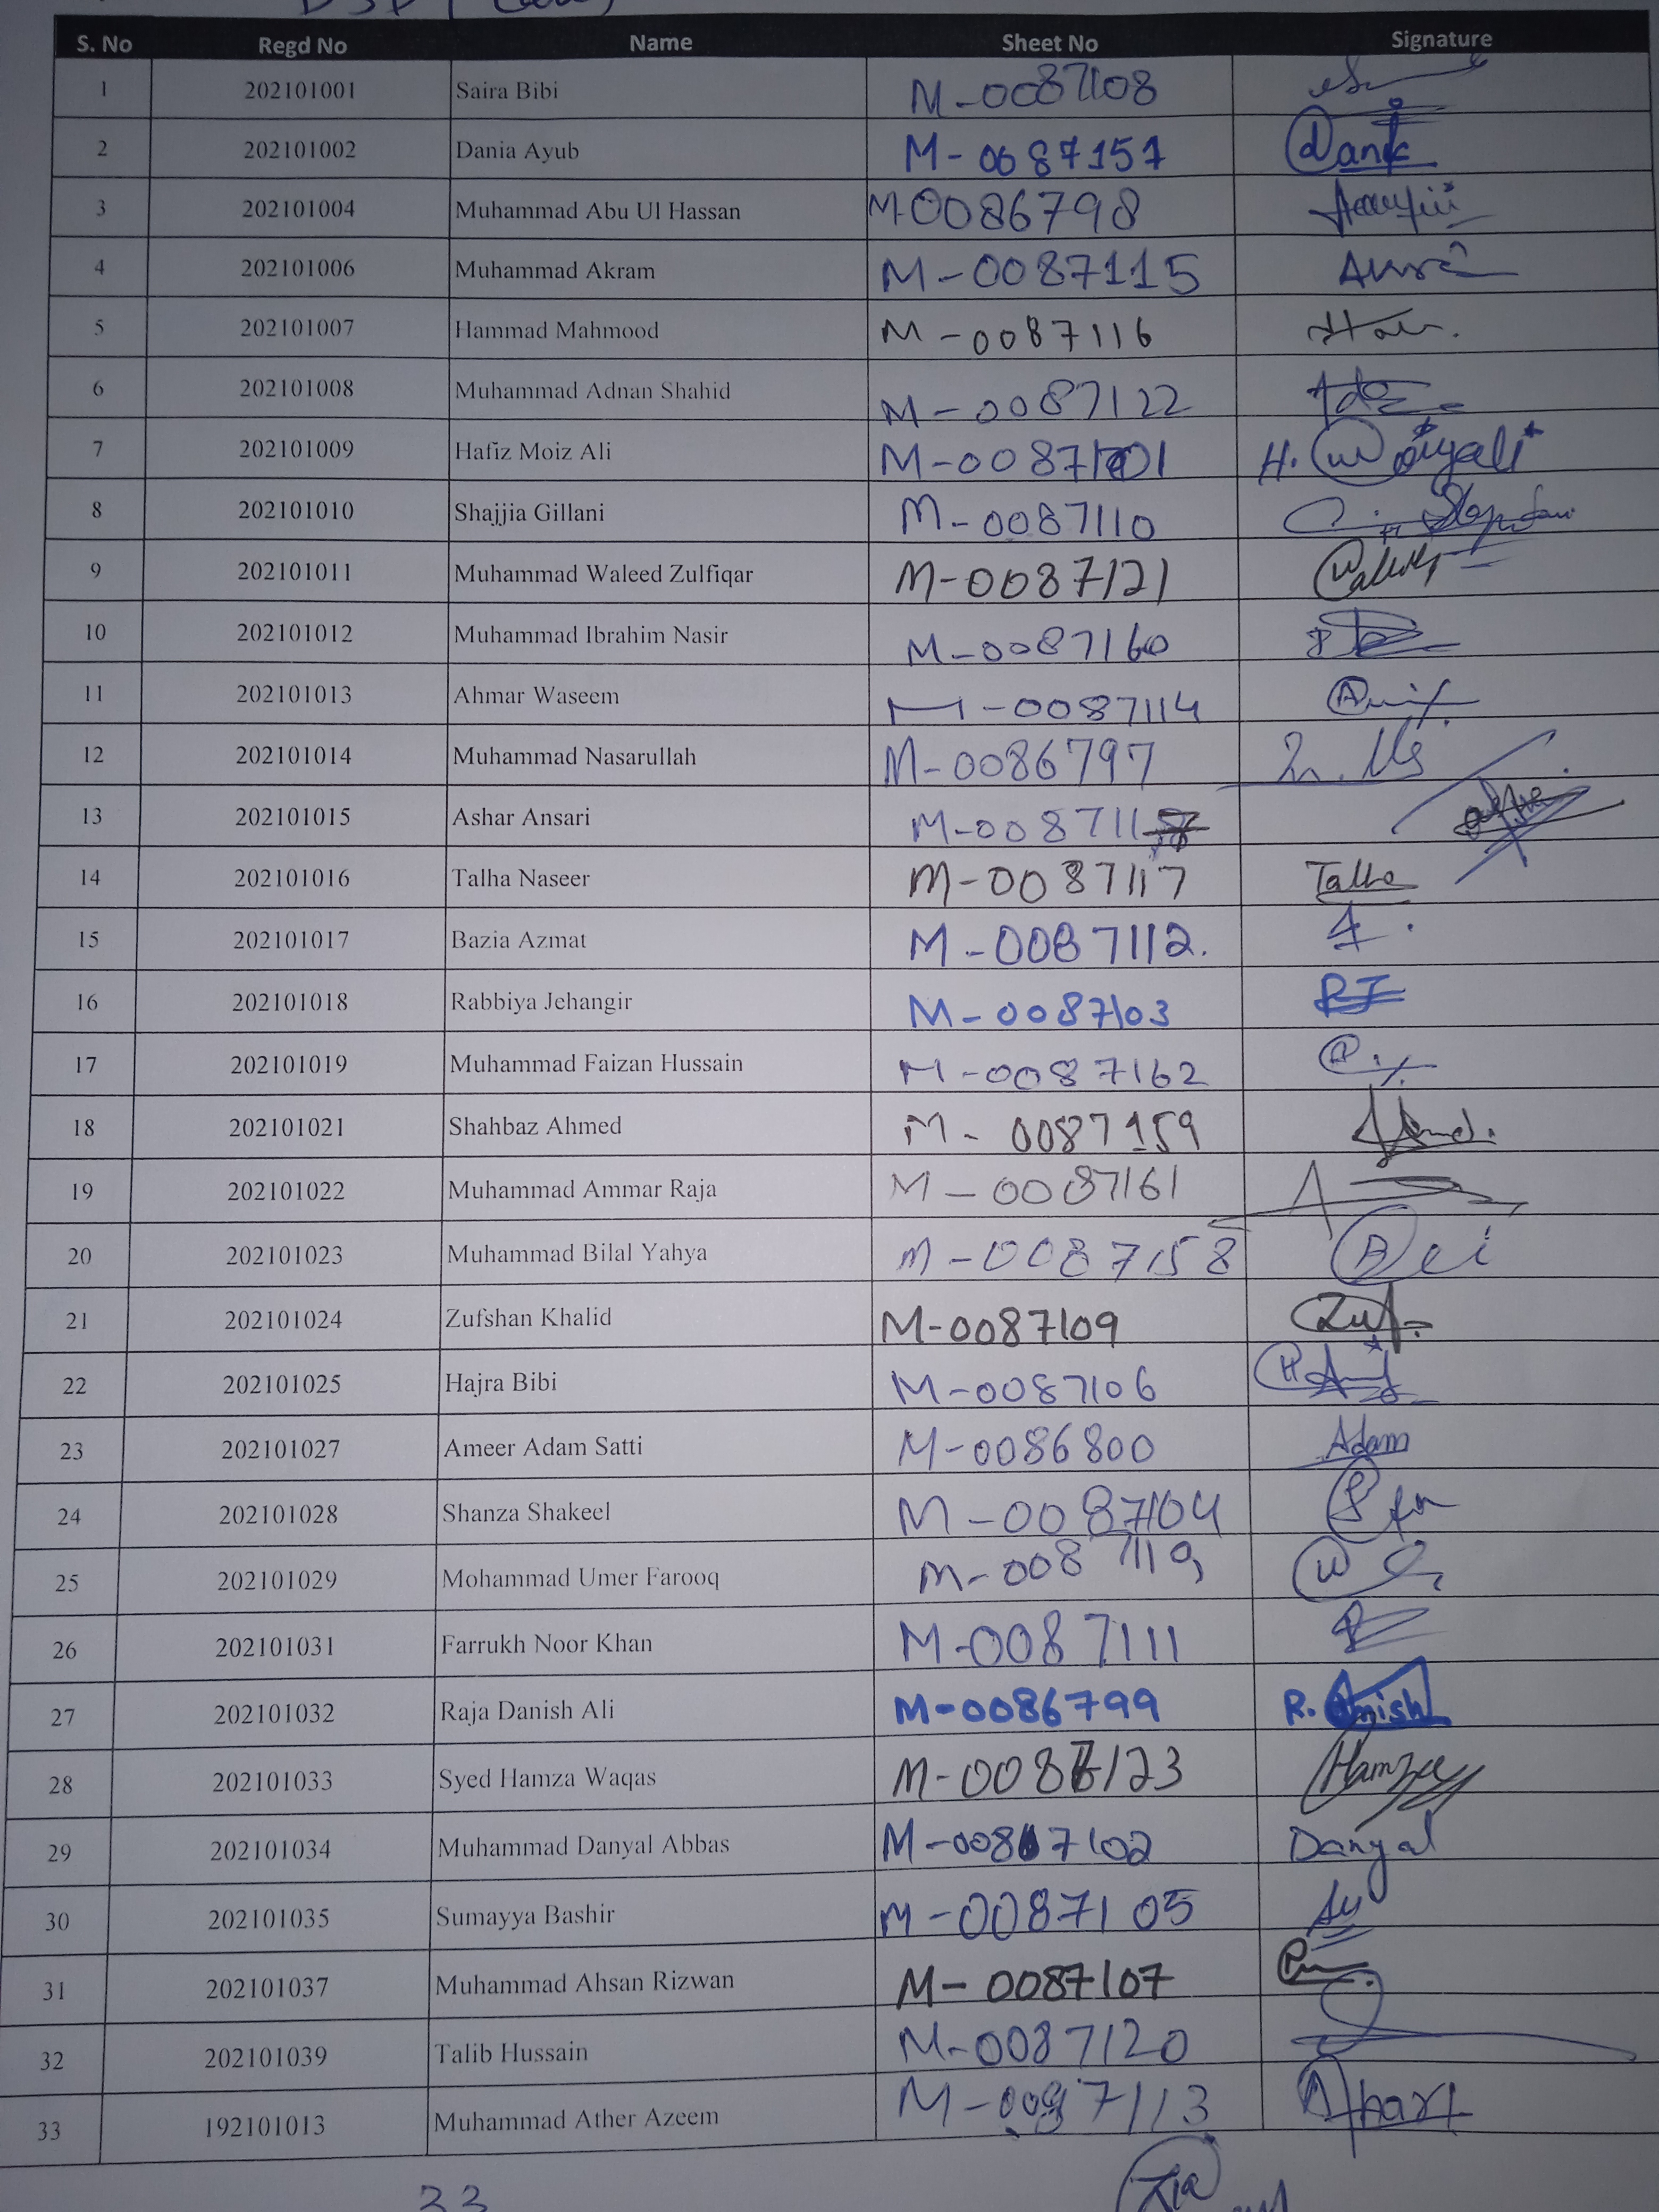 S. No Regd No Name Sheet No Signature
1 202101001 Saira Bibi M-0087108
2 202101002 Dania Ayub M-0087157 Dania
3 202101004 Muhammad Abu Ul Hassan M-0086798
4 202101006 Muhammad Akram M-0087115
5 202101007 Hammad Mahmood M-0087116
6 202101008 Muhammad Adnan Shahid M-0087122
7 202101009 Hafiz Moiz Ali M-0087101
8 202101010 Shajjia Gillani M-0087110
9 202101011 Muhammad Waleed Zulfiqar M-0087121
10 202101012 Muhammad Ibrahim Nasir M-0087160
11 202101013 Ahmar Waseem M-0087114
12 202101014 Muhammad Nasarullah M-0086797
13 202101015 Ashar Ansari
14 202101016 Talha Naseer M-0087117 Talha
15 202101017 Bazia Azmat M-0087112.
16 202101018 Rabbiya Jehangir M-0087103 RJ
17 202101019 Muhammad Faizan Hussain M-0087162
18 202101021 Shahbaz Ahmed M-0087159
19 202101022 Muhammad Ammar Raja M-0087161
20 202101023 Muhammad Bilal Yahya M-0087158
21 202101024 Zufshan Khalid M-0087109 Zuf
22 202101025 Hajra Bibi M-0087106
23 202101027 Ameer Adam Satti M-0086800 Adam
24 202101028 Shanza Shakeel M-0087104
25 202101029 Mohammad Umer Farooq M-0087119
26 202101031 Farrukh Noor Khan M-0087111
27 202101032 Raja Danish Ali M-0086799 R. Danish
28 202101033 Syed Hamza Waqas M-0087123 Hamza
29 202101034 Muhammad Danyal Abbas M-0087102 Danyal
30 202101035 Sumayya Bashir M-0087105
31 202101037 Muhammad Ahsan Rizwan M-0087107
32 202101039 Talib Hussain M-0087120
33 192101013 Muhammad Ather Azeem M-0087113
33 Zia